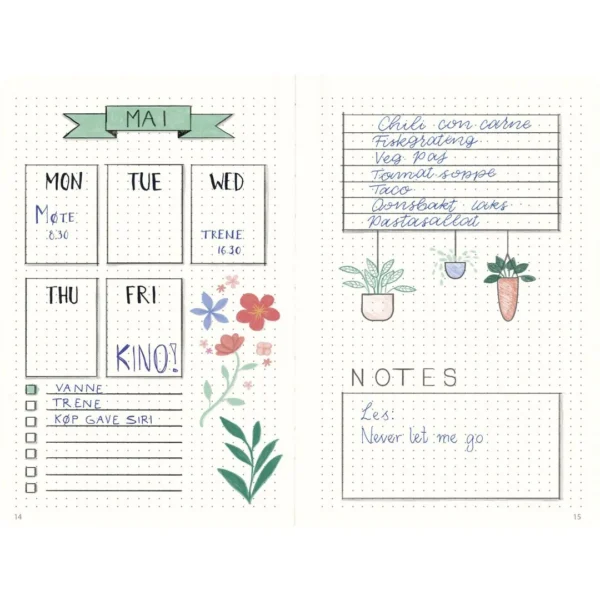 MAI
MON TUE WED
MØTE
8.30
TRENE
16.30
THU FRI
KINO!
VANNE
TRENE
KØP GAVE SIRI
Chili con carne
Fiskgrateng
Veg pas
Tomat soppe
Taco
laks
Pastasallad
NOTES
Les:
Never let me go
14
15